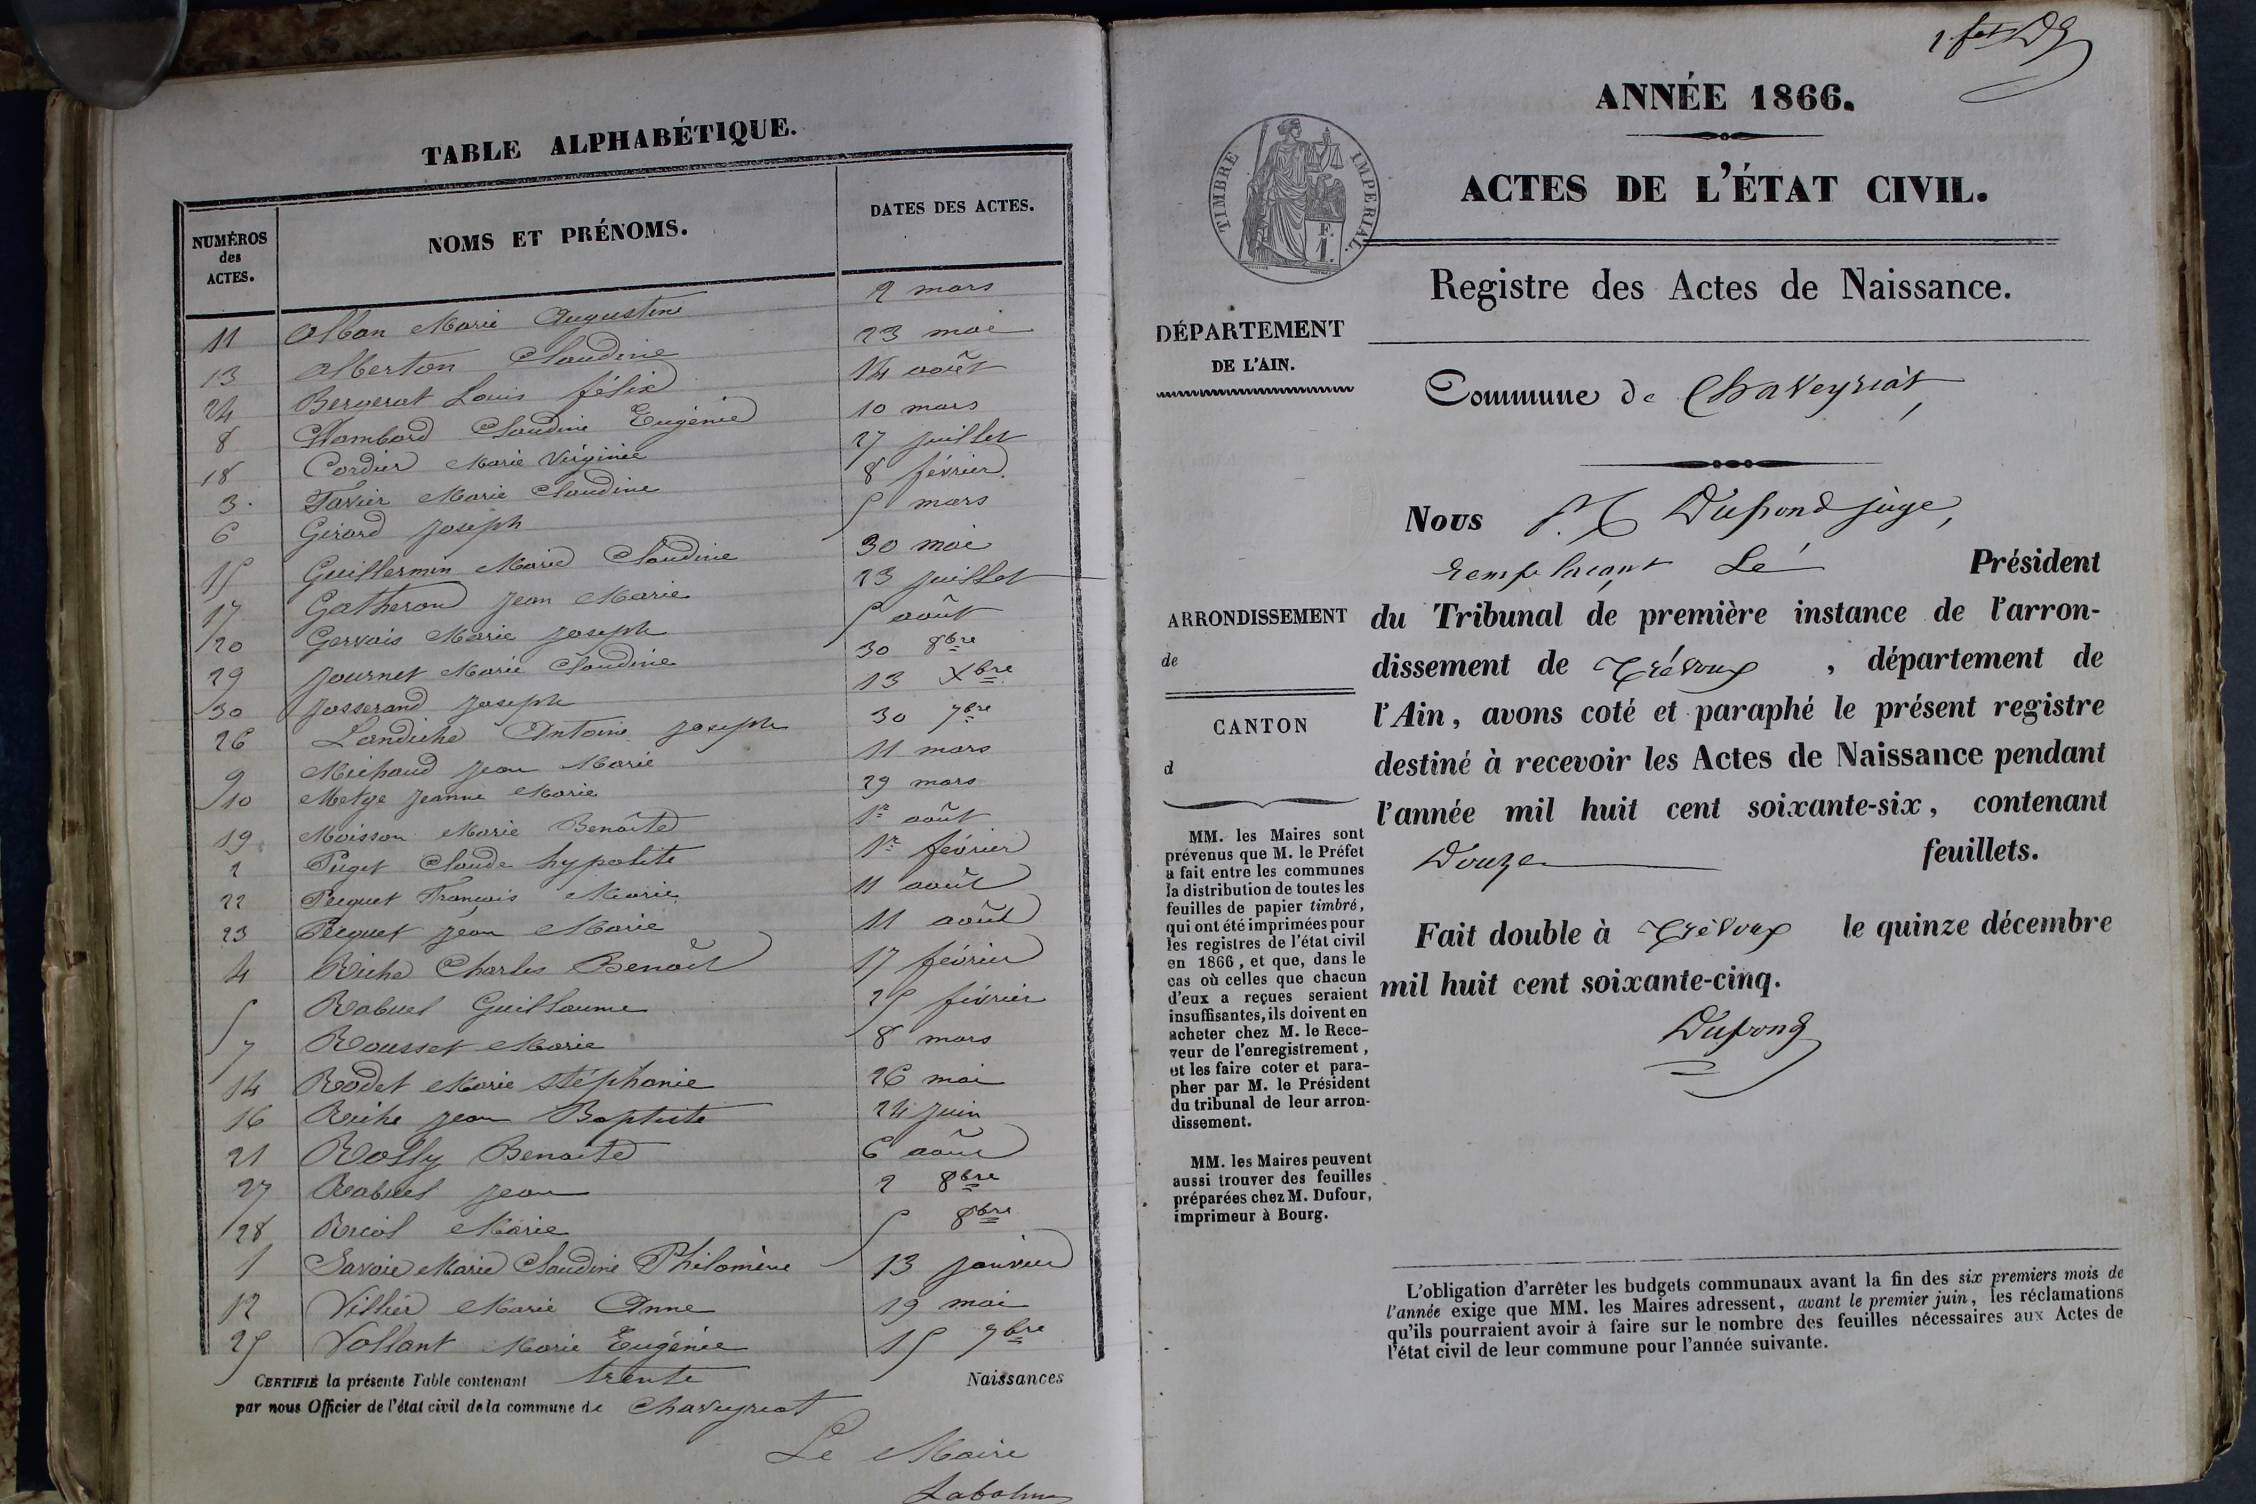 TABLE ALPHABÉTIQUE.
NUMÉROS des ACTES. NOMS ET PRÉNOMS. DATES DES ACTES.
11 Alban Marie Augustine 2 mars
13 Alberton Claudine 23 mai
24 Bergerat Louis félix 14 août
8 Chambard Claudine Eugénie 10 mars
18 Cordier Marie Virginie 27 juillet
3. Favier Marie Claudine 8 février
6 Girard joseph 5 mars
15 Guillermin Marie Claudine 30 mai
17 Gatheron jean Marie 23 juillet
20 Gervais Marie joseph 5 août
29 journet Marie Claudine 30 8bre
30 josserand joseph 13 Xbre
26 Landiche Antoine joseph 30 7bre
9 Michaud jean Marie 11 mars
10 Metge jeanne Marie 29 mars
19 Moisson Marie Benoîte 1er août
2 Puget Claude hypolite 1er février
22 Pecquet François Marie 11 août
23 Pecquet jean Marie 11 août
4 Riche Charles Benoît 17 février
5 Rabuel Guillaume 25 février
7 Rousset Marie 8 mars
14 Rodet Marie stéphanie 26 mai
16 Riche jean Baptiste 24 juin
21 Rolly Benoite 6 août
27 Rabuel jean 2 8bre
28 Marie 5 8bre
1 Savoie Marie Claudine Philomène 13 janvier
12 Villier Marie Anne 19 mai
25 Vollant Marie Eugénie 15 7bre
CERTIFIÉ la présente Table contenant trente Naissances
par nous Officier de l'état civil de la commune de Chaveyriat
Le Maire
ANNÉE 1866.
TIMBRE IMPERIAL.
F. 1.
ACTES DE L'ÉTAT CIVIL.
Registre des Actes de Naissance.
DÉPARTEMENT
DE L'AIN.
Commune de Chaveyriat,
Nous Dupond juge,
remplaçant Le Président
du Tribunal de première instance de l'arron-
dissement de Trévoux, département de
l'Ain, avons coté et paraphé le présent registre
destiné à recevoir les Actes de Naissance pendant
l'année mil huit cent soixante-six, contenant
Douze feuillets.
Fait double à Trévoux le quinze décembre
mil huit cent soixante-cinq.
Dupond
ARRONDISSEMENT
de
CANTON
d
MM. les Maires sont
prévenus que M. le Préfet
a fait entre les communes
la distribution de toutes les
feuilles de papier timbré,
qui ont été imprimées pour
les registres de l'état civil
en 1866, et que, dans le
cas où celles que chacun
d'eux a reçues seraient
insuffisantes, ils doivent en
acheter chez M. le Rece-
veur de l'enregistrement,
et les faire coter et para-
pher par M. le Président
du tribunal de leur arron-
dissement.
MM. les Maires peuvent
aussi trouver des feuilles
préparées chez M. Dufour,
imprimeur à Bourg.
L'obligation d'arrêter les budgets communaux avant la fin des six premiers mois de
l'année exige que MM. les Maires adressent, avant le premier juin, les réclamations
qu'ils pourraient avoir à faire sur le nombre des feuilles nécessaires aux Actes de
l'état civil de leur commune pour l'année suivante.